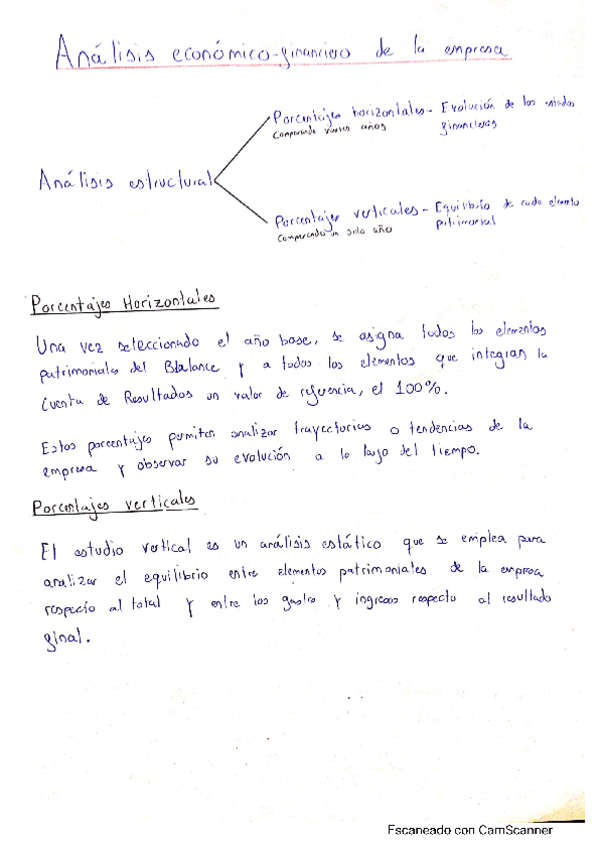 Análisis económico-financiero de la empresa
Porcentajes horizontales - Evolución de los estados
Comparando varios años financieros
Análisis estructural
Porcentajes verticales - Equilibrio de cada elemento
Comparando un solo año patrimonial
Porcentajes Horizontales
Una vez seleccionado el año base, se asigna todos los elementos
patrimoniales del Blalance y a todos los elementos que integran la
Cuenta de Resultados un valor de referencia, el 100%.
Estos porcentajes permiten analizar trayectorias o tendencias de la
empresa y observar su evolución a lo largo del tiempo.
Porcentajes verticales
El estudio vertical es un análisis estático que se emplea para
analizar el equilibrio entre elementos patrimoniales de la empresa
respecto al total y entre los gastos y ingresos respecto al resultado
final.
Escaneado con CamScanner